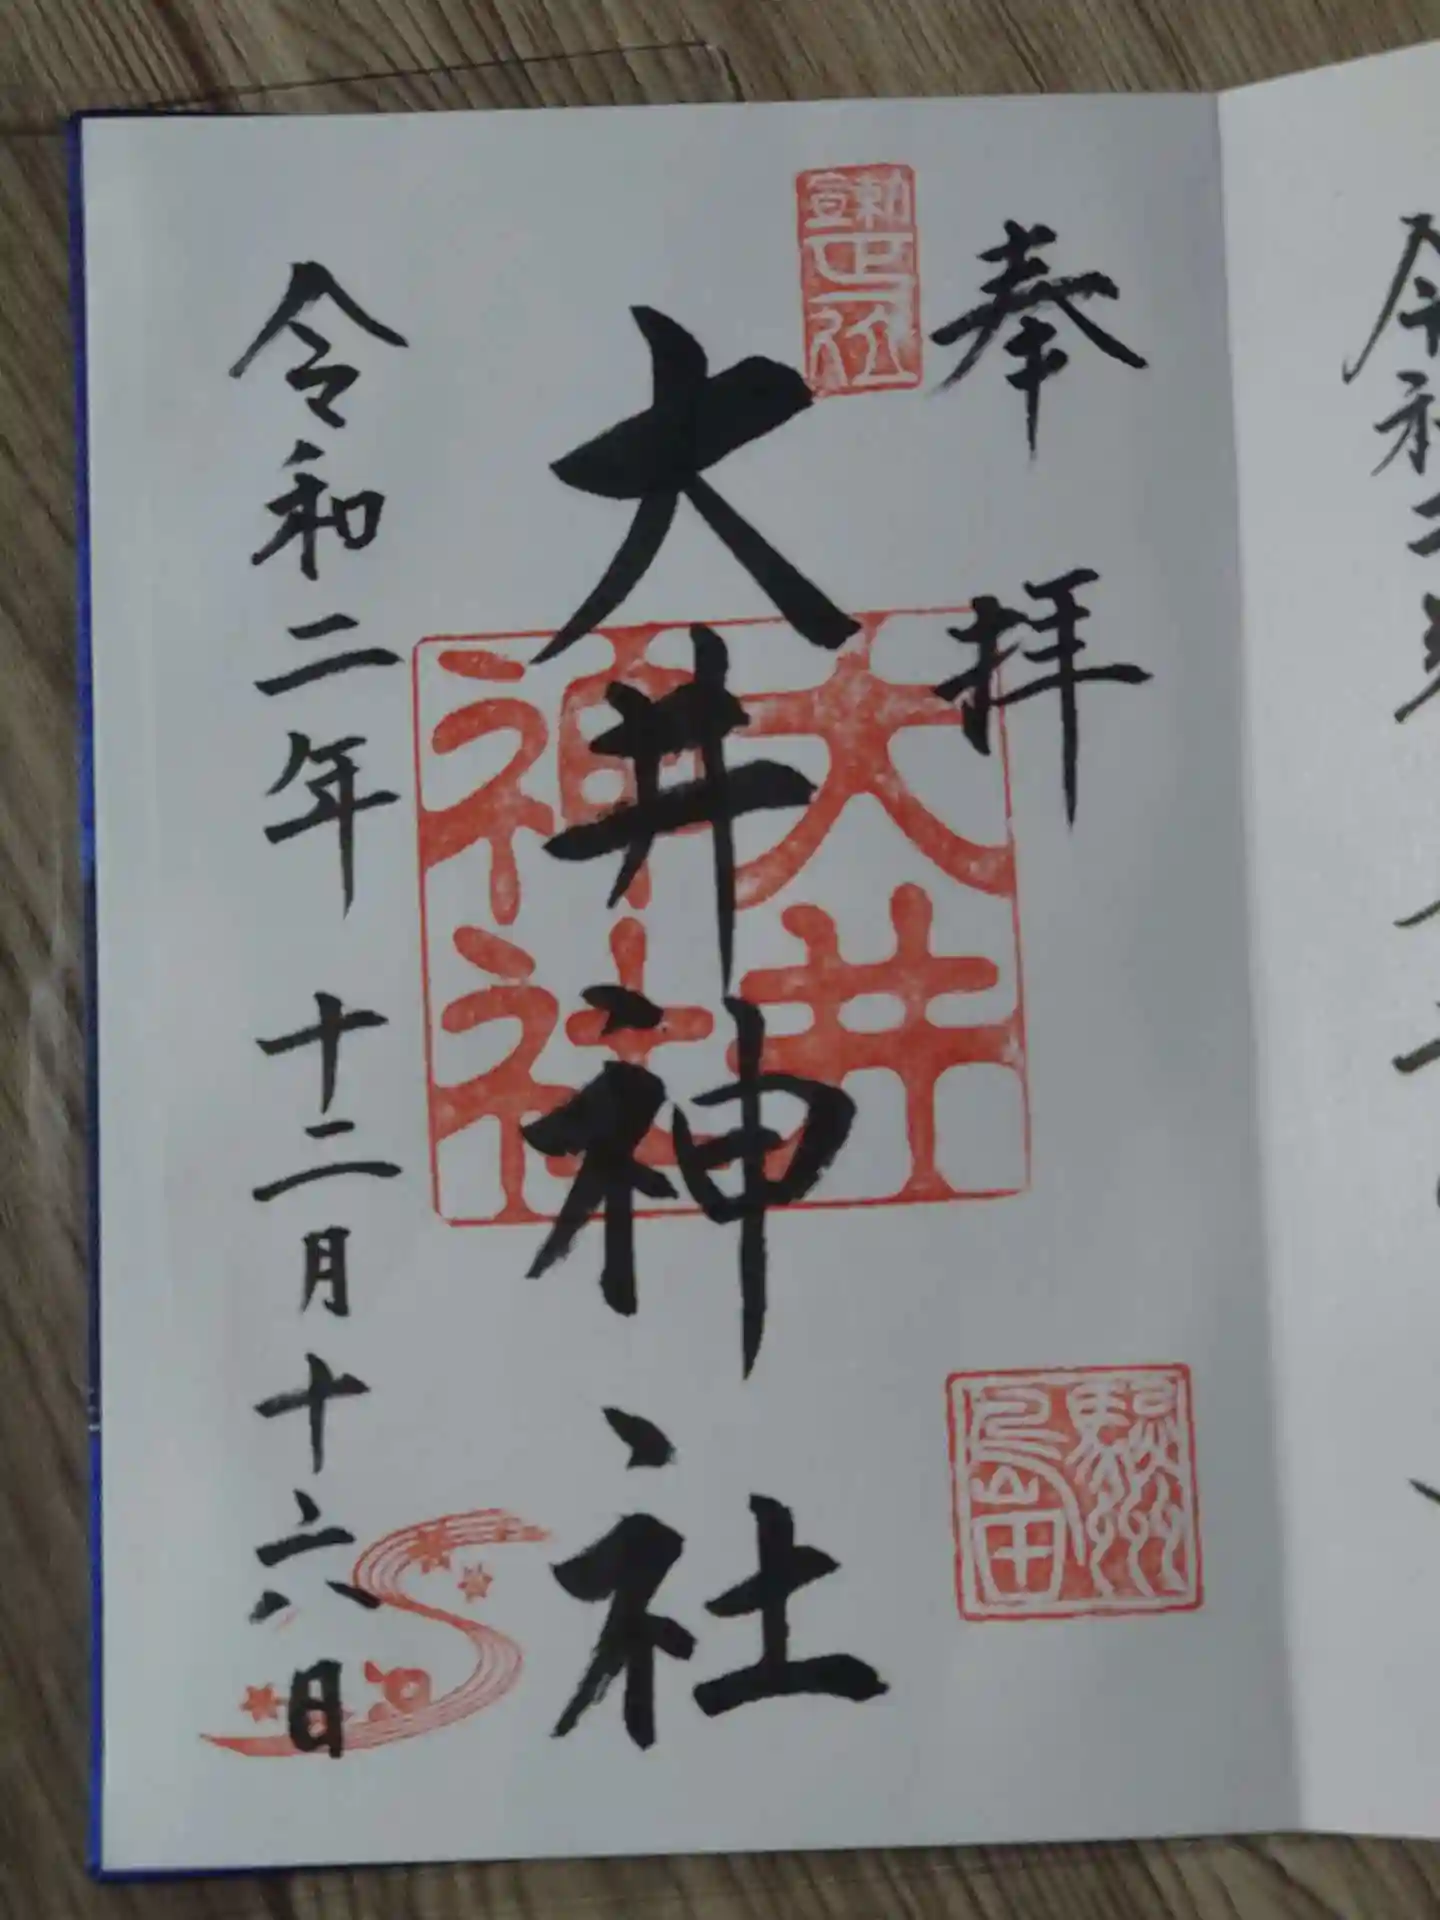 奉拝
勅宣正一位
駿州島田
大井神社
大井神社
令和二年 十二月十六日
令和二年